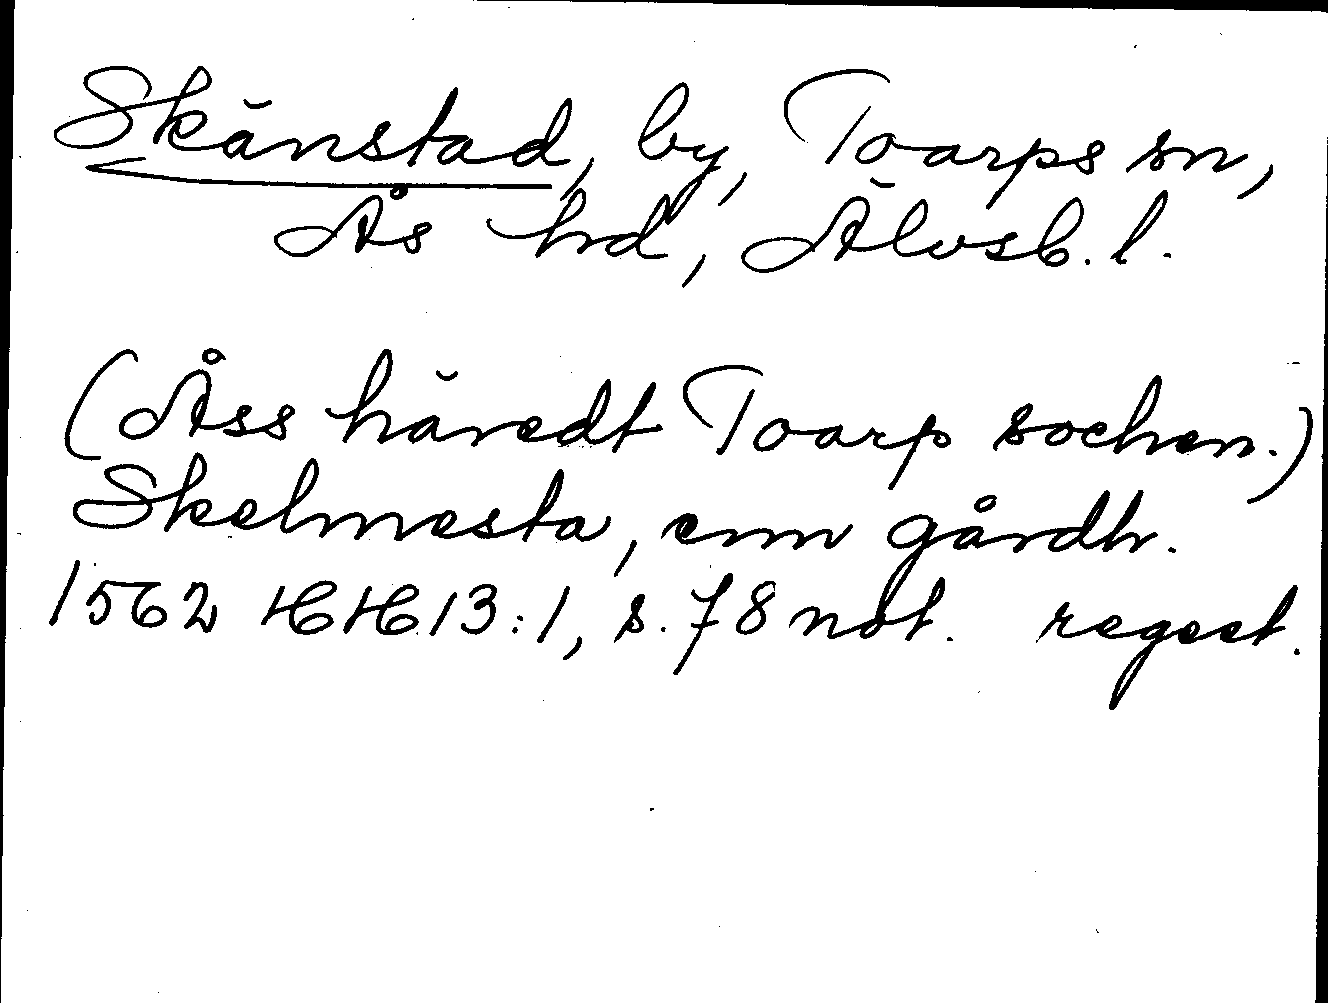 Skänstad, by, Toarps sn,
Ås hd, Älvsb. l.
(Åss häredt Toarp sochen.)
Skelmesta, enn gårdh.
1562 HH 13:1, s. 78 not. regest.